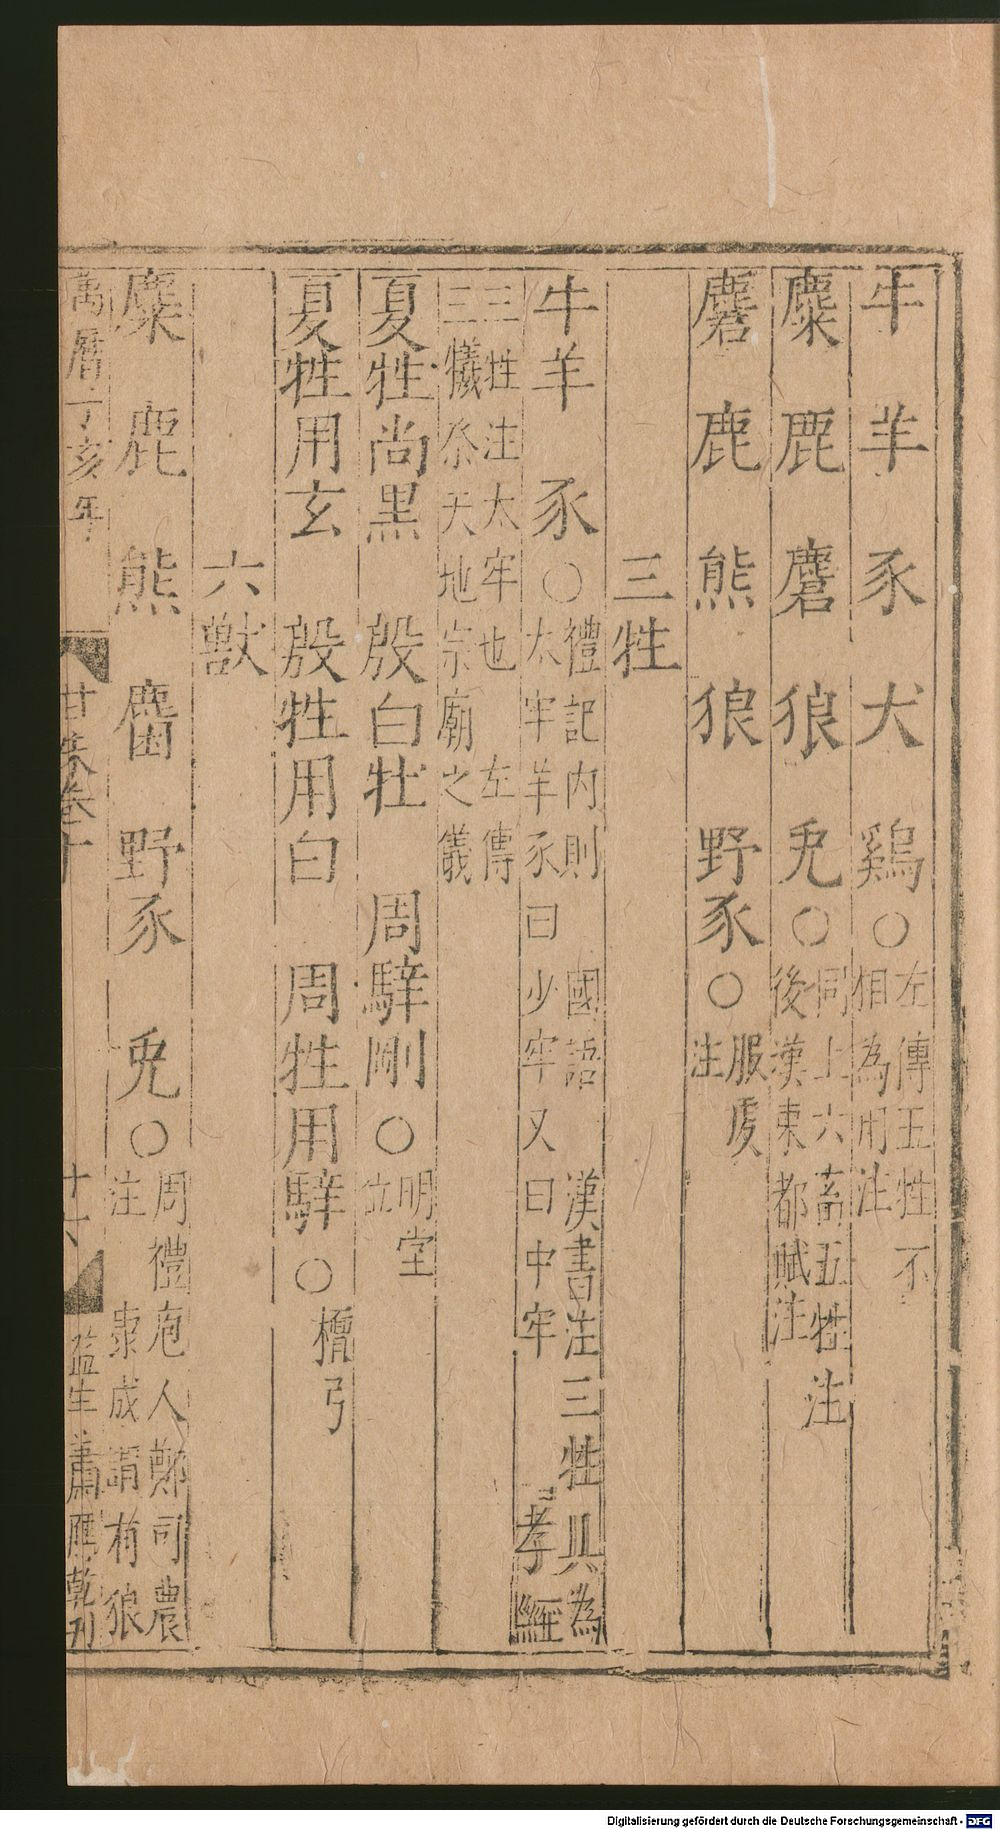 牛 羊 豕 犬 鷄○左傳五牲不相為用注
麋 鹿 麏 狼 兎○同上六畜五牲注後漢東都賦注
麏 鹿 熊 狼 野豕○服虔注
三牲
牛羊 豕○禮記内則 國語 漢書注三牲具為太牢羊豕曰少牢又曰中牢 孝經
三牲注太牢也 左傳三犧祭天地宗廟之儀
夏牲尚黑 殷白牡 周騂剛○明堂位
夏牲用玄 殷牲用白 周牲用騂○檀弓
六獸
麋 鹿 熊 麕 野豕 兎○周禮庖人鄭司農注 康成謂有狼
萬曆丁亥年 卷十 十六 監生蕭應乾刋
Digitalisierung gefördert durch die Deutsche Forschungsgemeinschaft - DFG